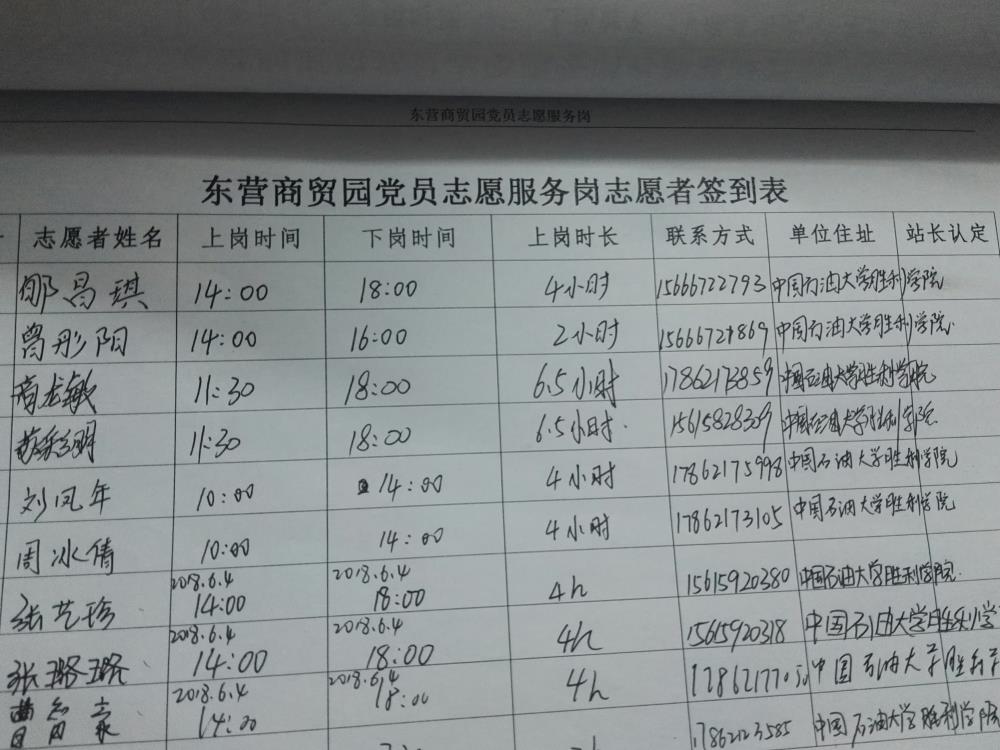 东营商贸园党员志愿服务岗
东营商贸园党员志愿服务岗志愿者签到表
志愿者姓名 上岗时间 下岗时间 上岗时长 联系方式 单位住址 站长认定
邹昌琪 14:00 18:00 4小时 15666722793 中国石油大学胜利学院
曾彤阳 14:00 16:00 2小时 15666721869 中国石油大学胜利学院.
商龙敏 11:30 18:00 6.5小时 17862173859 中国石油大学胜利学院
11:30 18:00 6.5小时. 15615828309 中国石油大学胜利学院.
刘凤年 10:00 14:00 4小时 17862175998 中国石油大学胜利学院
周冰倩 10:00 14:00 4小时 17862173105 中国石油大学胜利学院
张艺珍 2018.6.4 14:00 2018.6.4 18:00 4h 15615920380 中国石油大学胜利学院.
张璐璐 2018.6.4 14:00 2018.6.4 18:00 4h 15615920318 中国石油大学胜利学
2018.6.4 14:00 2018.6.4 18:00 4h 中国石油大学胜利学
17862123585 中国石油大学胜利学院